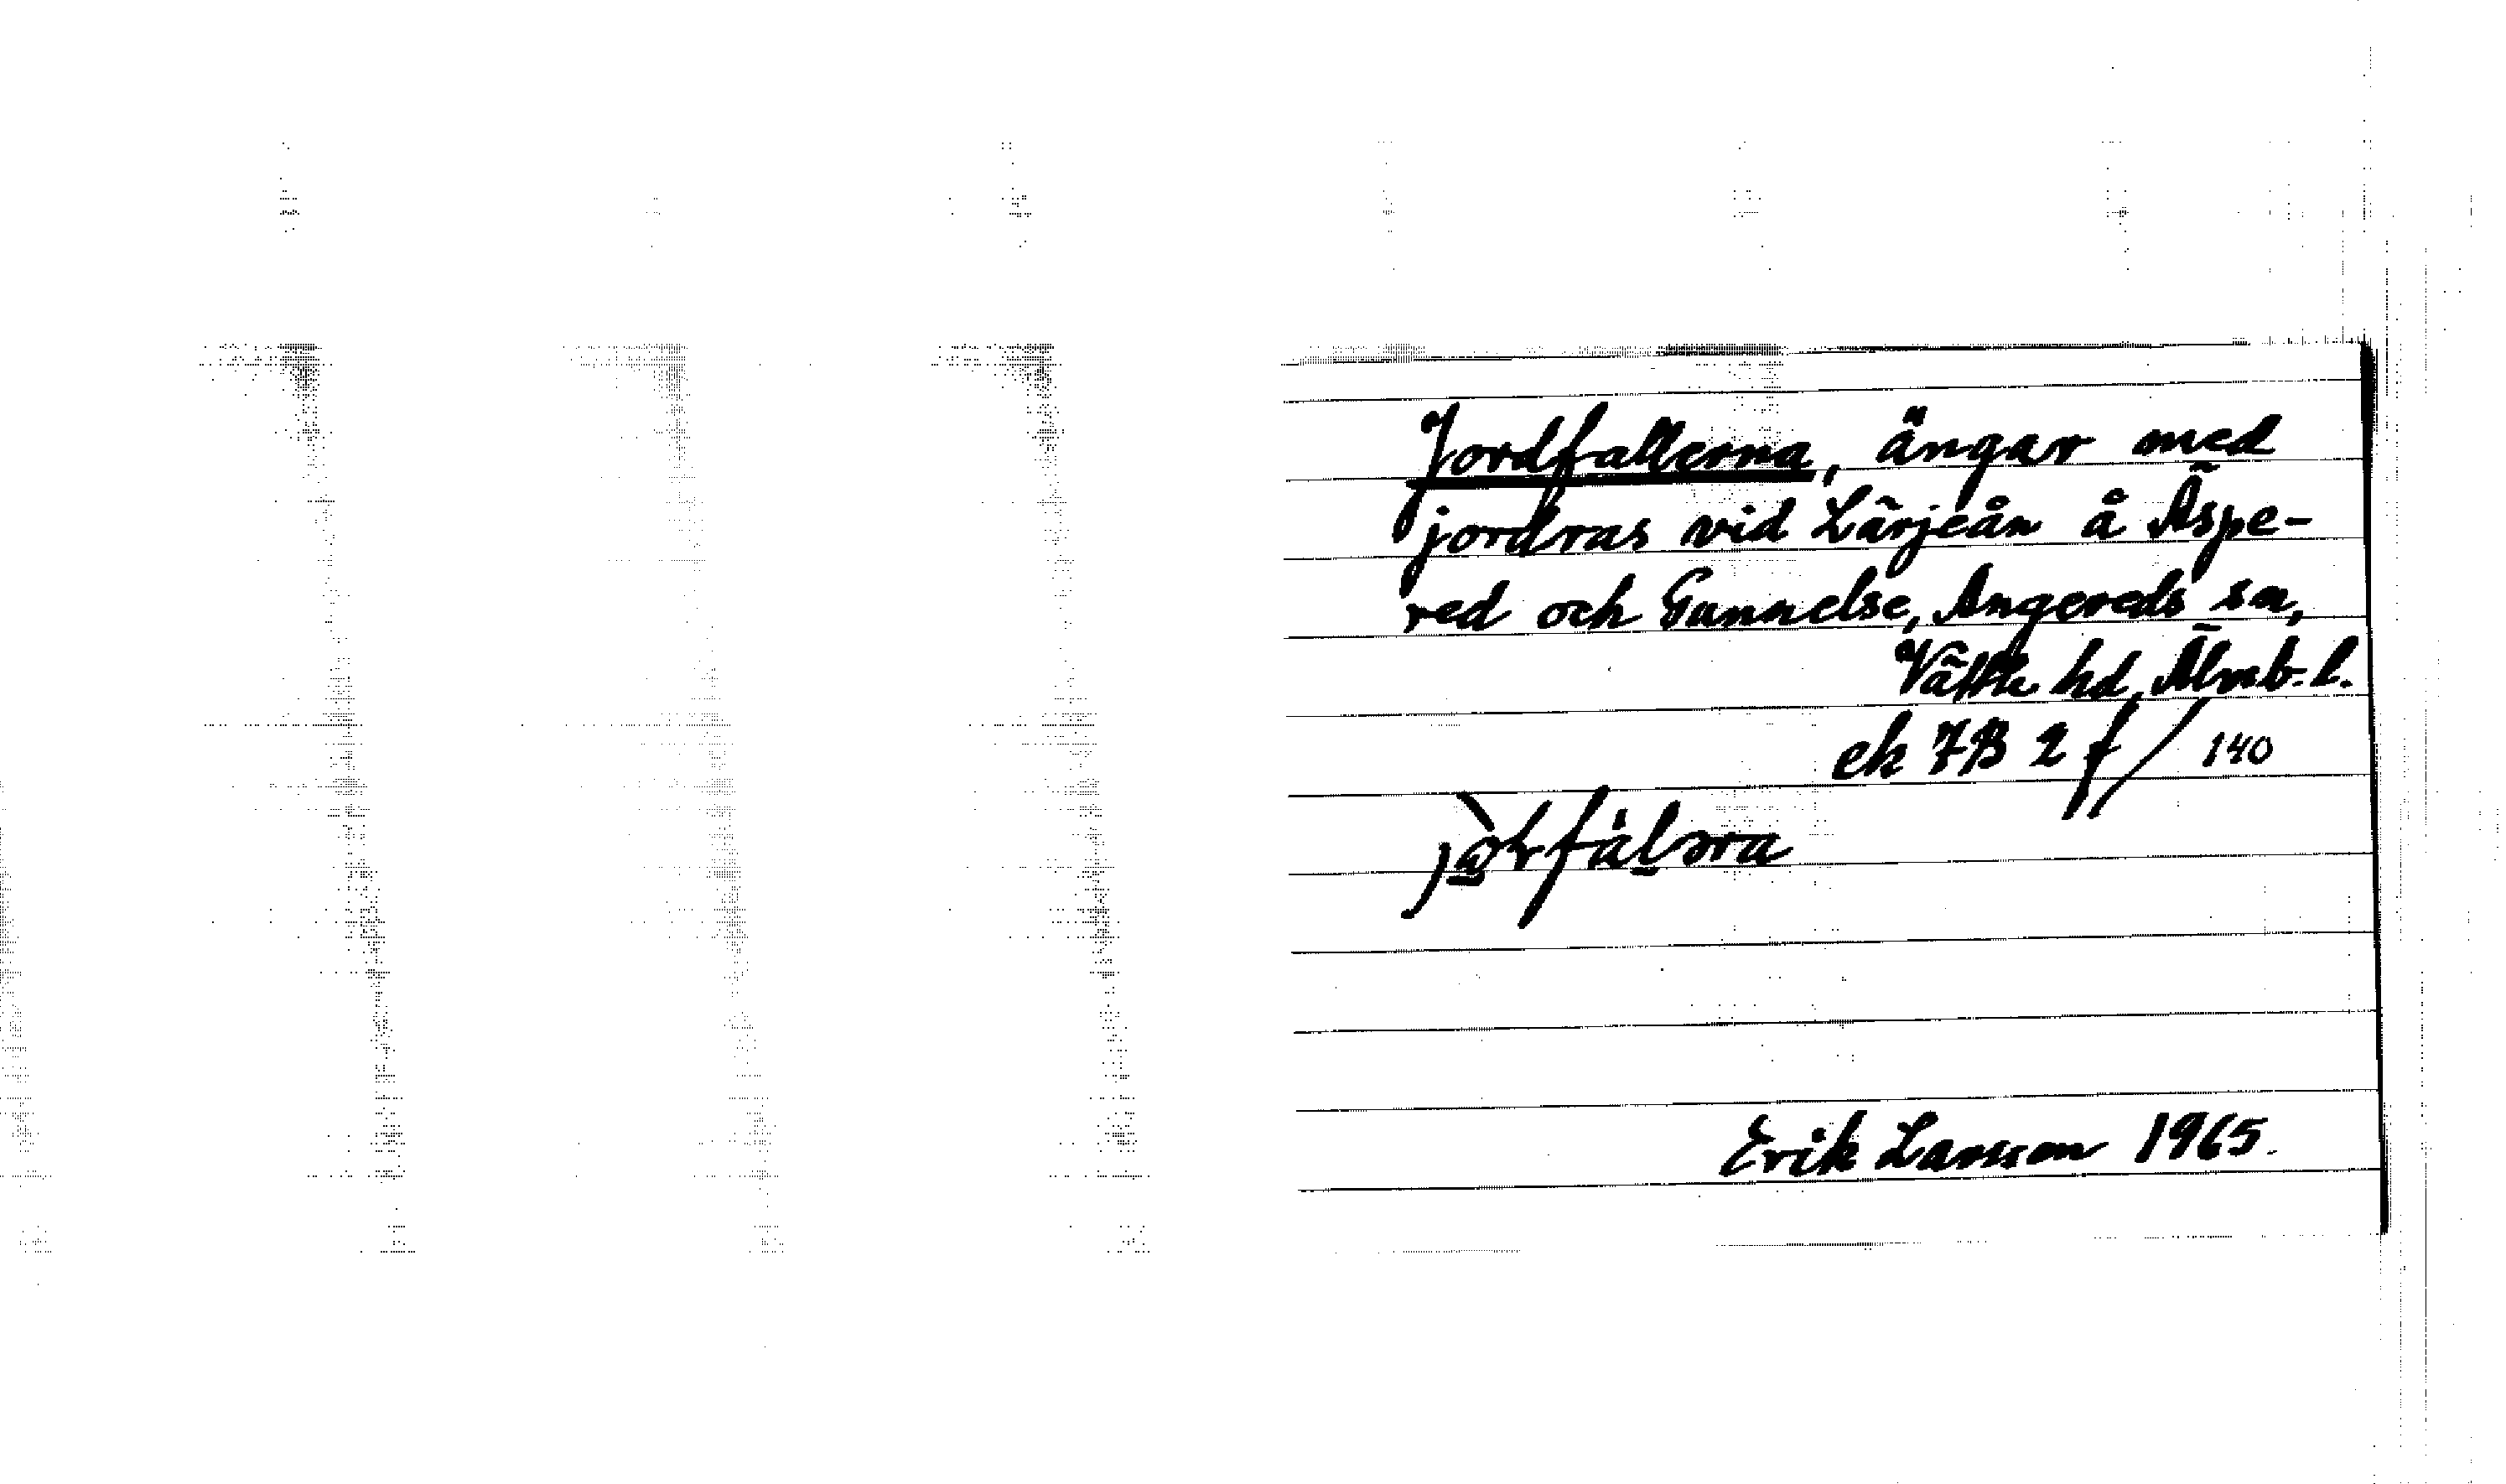 Jordfallerna, ängar med
jordras vid Lärjeån å Äspe-
red och Gunnelse, Angereds sn,
Vättle hd, Älvsb. l.
ek 7B 2 f/ 140
Erik Larsson 1965.